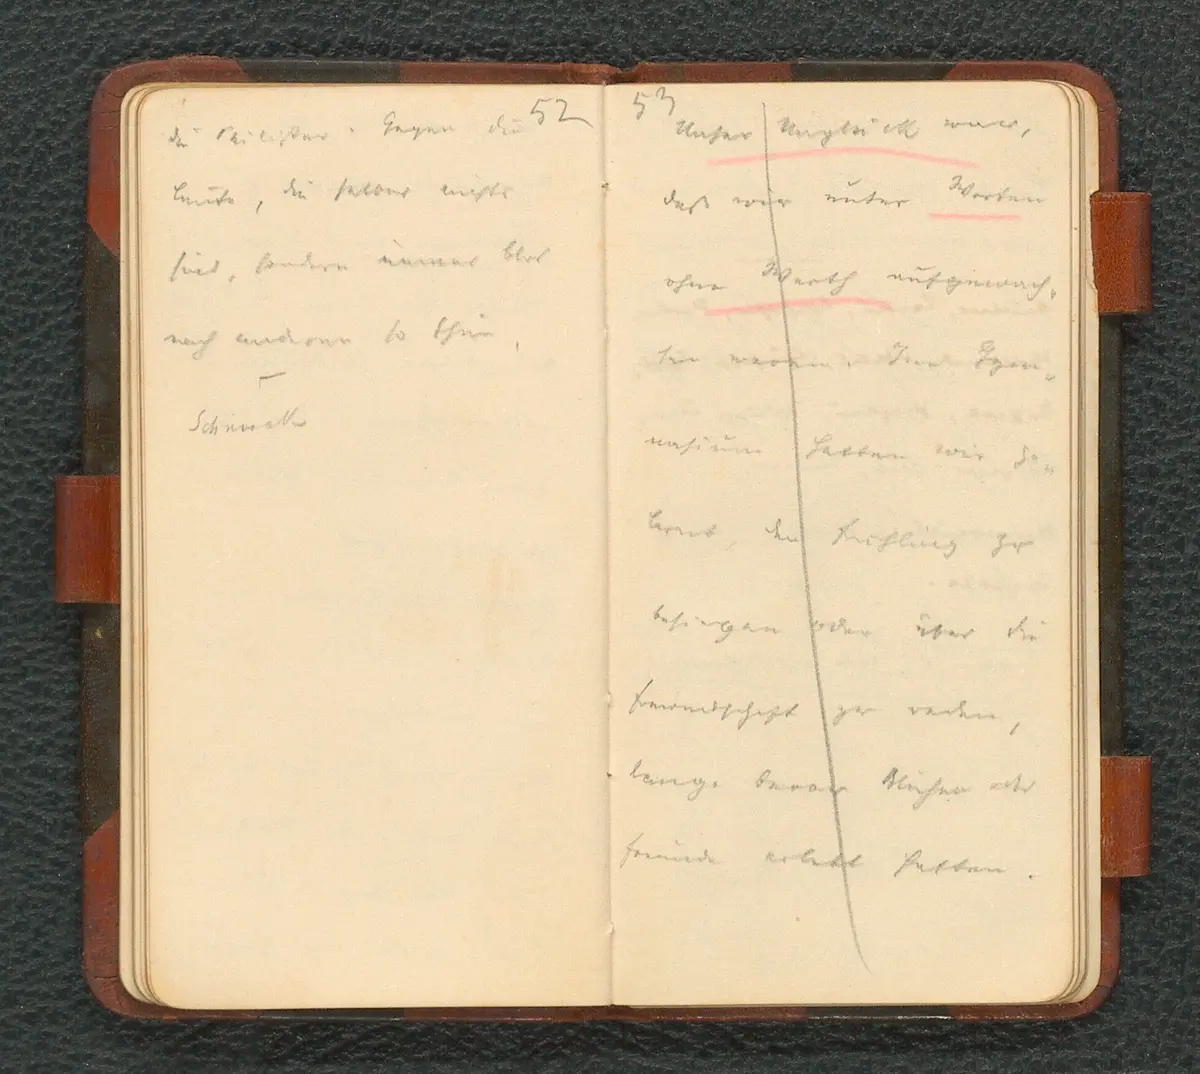 52
die Philister. Gegen die
Leute, die selber nichts
sind, sondern immer blos
nach anderen so thun,
53
Unser Unglück war,
daß wir unter Worten
ohne Werth aufgewach-
sen waren. Im Gym-
nasium hatten wir ge-
lernt, den Frühling zu
besingen oder über die
Freundschaft zu reden,
lange bevor wir oder
Freunde erlebt hatten.